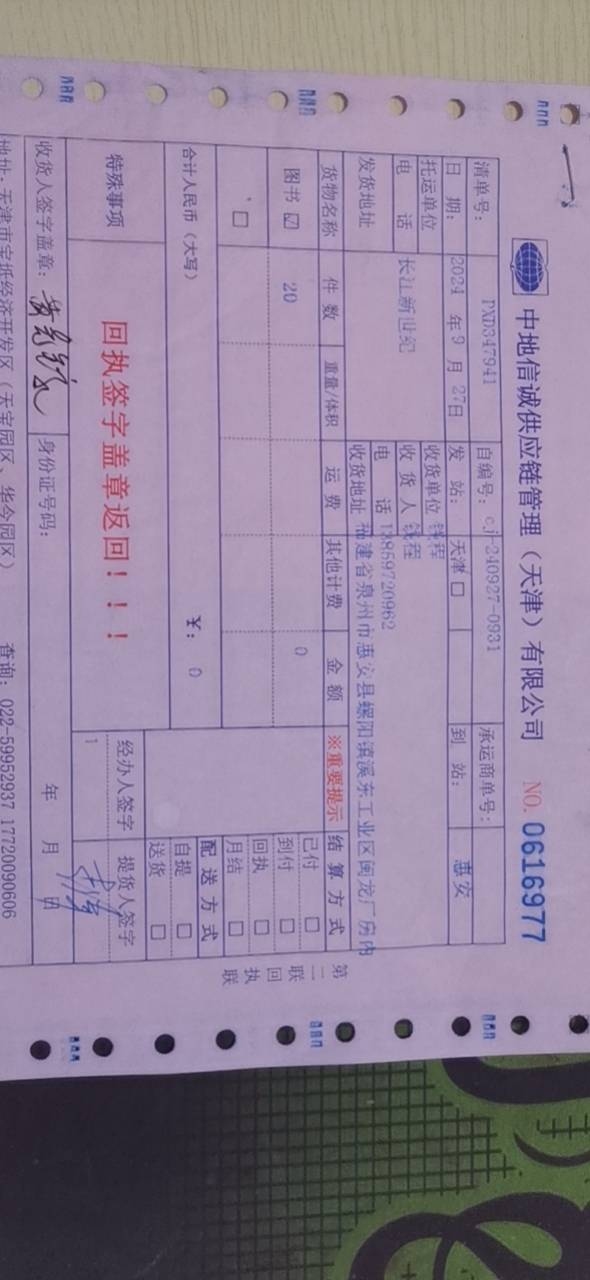 中地信诚供应链管理（天津）有限公司 NO. 0616977
清单号： PXD347941 自编号：cj-240927-0931 承运商单号：
日 期： 2024 年 9 月 27日 发 站： 天津 □ 到 站： 惠安
托运单位 收货单位 钱程
电 话 长江新世纪 收 货 人 钱程
电 话 13959720962
发货地址 收货地址 福建省泉州市惠安县螺阳镇溪东工业区闽龙厂房内
货物名称 件 数 重量/体积 运 费 其他计费 金 额 ※重要提示 结 算 方 式
图书 ☑ 20 0 已付 □
到付 □
□ 回执 □
月结 □
合计人民币（大写） ￥： 0 配 送 方 式
自提 □
送货 □
特殊事项 回执签字盖章返回！！！ 经办人签字 提货人签字
1
收货人签字盖章： 身份证号码： 年 月 日
地址：天津市宝坻经济开发区（天宝园区、华今园区） 查询：022-59952937 17720090606
第二联 回执联